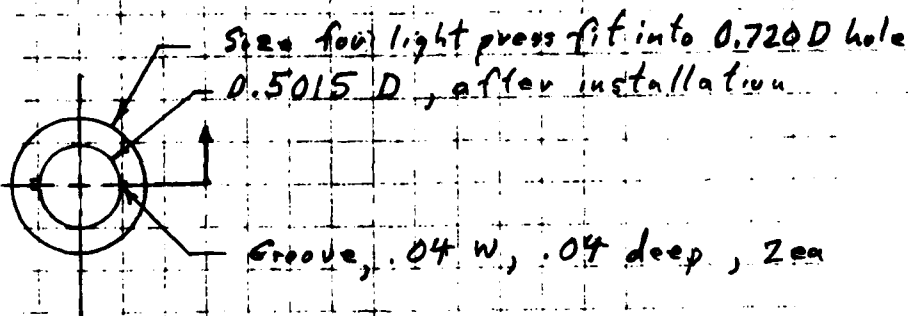 Size for light press fit into 0.720 D hole
0.5015 D, after installation
Groove, .04 W, .04 deep, 2 ea